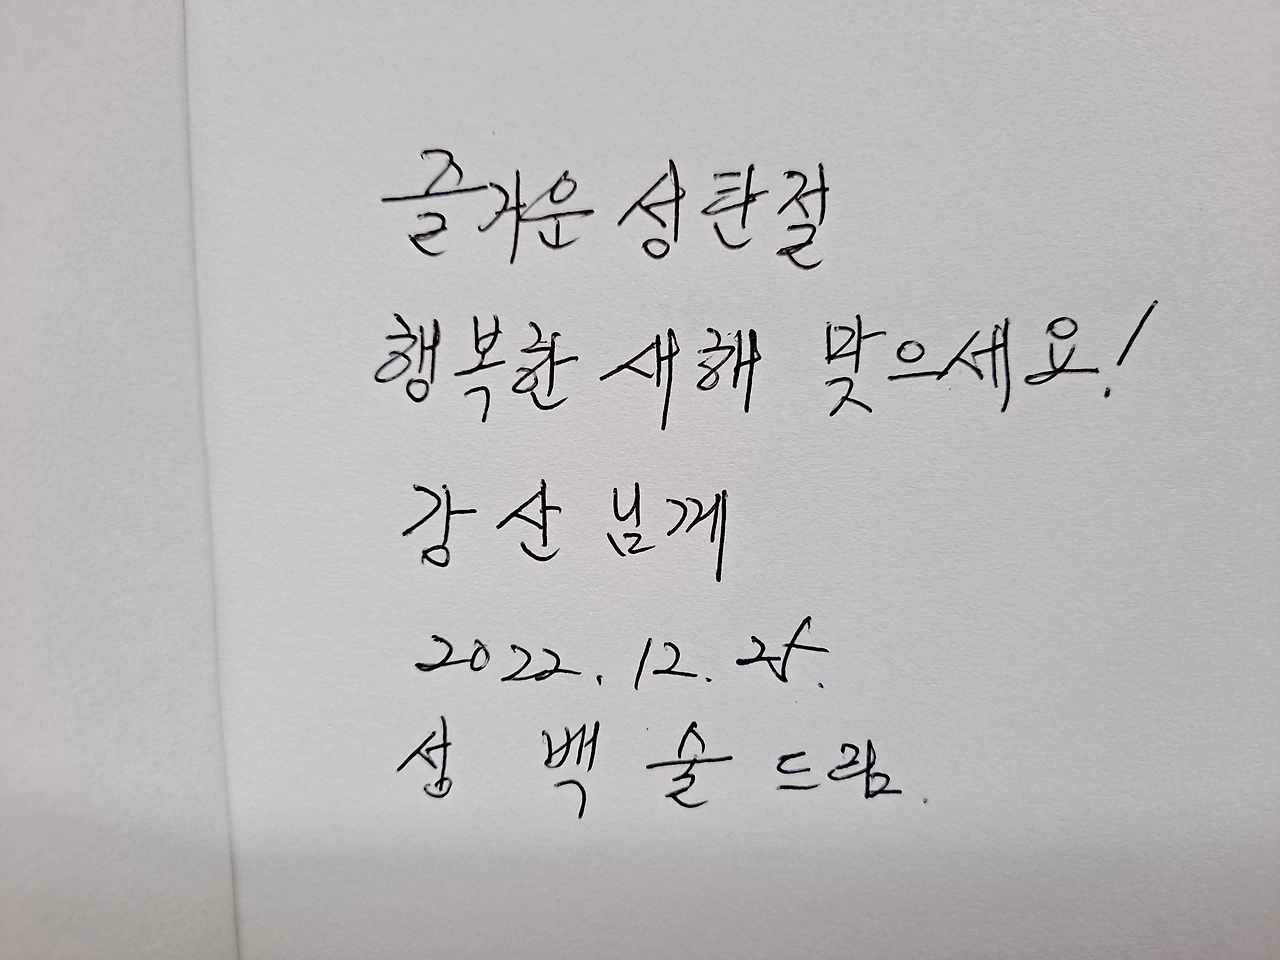 즐거운 성탄절
행복한 새해 맞으세요!
강산님께
2022. 12. 25.
성 백 술 드림.